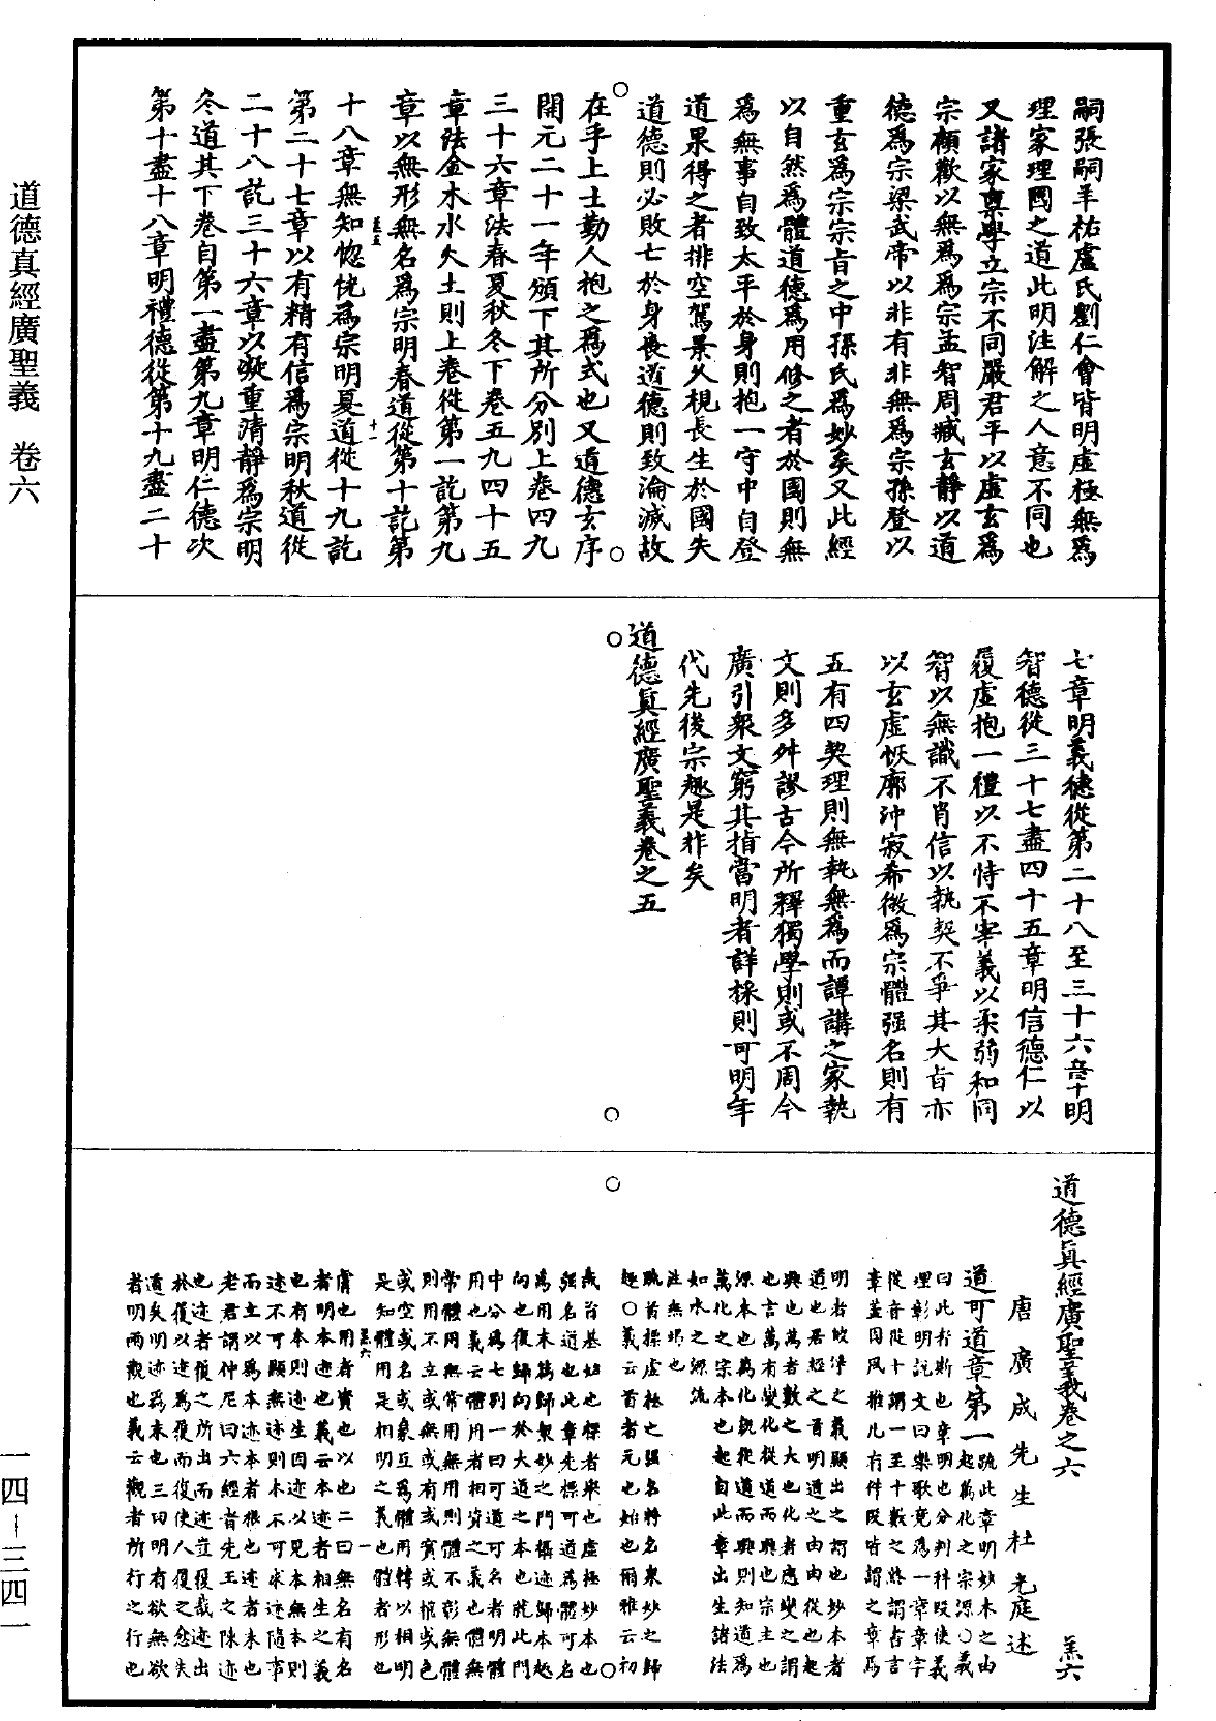 道德真經廣聖義　卷六
一四—三四一
嗣張嗣羊祐盧氏劉仁會皆明虛極無爲
理家理國之道此明注解之人意不同也
又諸家稟學立宗不同嚴君平以虛玄爲
宗顧歡以無爲爲宗孟智周臧玄靜以道
德爲宗梁武帝以非有非無爲宗孫登以
重玄爲宗宗旨之中孫氏爲妙矣又此經
以自然爲體道德爲用修之者於國則無
爲無事自致太平於身則抱一守中自登
道果得之者排空駕景久視長生於國失
道德則必敗亡於身喪道德則致淪滅故
在乎上士勤人抱之爲式也又道德玄序
開元二十一年頒下其所分別上卷四九
三十六章法春夏秋冬下卷五九四十五
章法金木水火土則上卷從第一訖第九
章以無形無名爲宗明春道從第十訖第
十八章無知惚恍爲宗明夏道從十九訖
第二十七章以有精有信爲宗明秋道從
二十八訖三十六章以凝重清靜爲宗明
冬道其下卷自第一盡第九章明仁德次
第十盡十八章明禮德從第十九盡二十
七章明義德從第二十八至三十六章明
智德從三十七盡四十五章明信德仁以
履虛抱一禮以不恃不宰義以柔弱和同
智以無識不肖信以執契不爭其大旨亦
以玄虛恢廓沖寂希微爲宗體强名則有
五有四契理則無執無爲而譚講之家執
文則多舛謬古今所釋獨學則或不周今
廣引衆文窮其指當明者詳採則可明年
代先後宗趣是非矣
道德真經廣聖義卷之五
道德真經廣聖義卷之六
羔六
唐廣成先生杜光庭述
道可道章第一
疏此章明妙本之由
起萬化之宗源○義
曰此者斯也章明也分判科段使義
理彰明說文曰樂歌竟爲一章章字
從音從十謂一至十數之終謂古言
章蓋因風雅凡有件段皆謂之章焉
明者皎淨之義顯出之謂也妙本者
道也居經之首明道之由由從也起
興也萬者數之大也化者應變之謂
也言萬有變化從道而興也宗主也
源本也萬化旣從道而興則知道爲
萬化之宗本也起自此章出生諸法
如水之源流
注無場也
疏首標虛極之强名將名衆妙之歸
趣○義云首者元也始也爾雅云初
哉首基始也標者舉也虛極妙本也
强名道也此章先標可道爲體可名
爲用末篇歸衆妙之門攝迹歸本趣
向也復歸向於大道之本也就此門
中分爲七別一曰可道可名者明體
用也義云體用者相資之義也體無
常體用無常用無用則體不彰無體
則用不立或無或有或實或權或色
或空或名或象互爲體用轉以相明
是知體用是相明之義也體者形也
膚也用者資也以也二曰無名有名
者明本迹也義云本迹者相生之義
也有本則迹生因迹以見本無本則
迹不可顯無迹則本不可求迹隨事
而立以爲本迹本者根也迹者末也
老君謂仲尼曰六經者先王之陳迹
也迹者履之所出而迹豈履哉迹出
於履以迹爲履而復使人履之愈失
道矣明迹爲末也三曰明有欲無欲
者明兩觀也義云觀者所行之行也